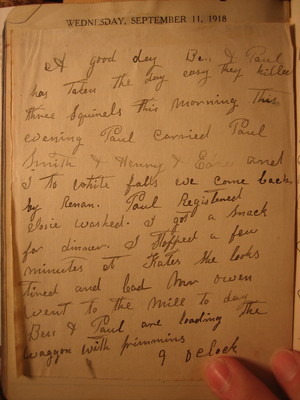 WEDNESDAY, SEPTEMBER 11, 1918
A good day Ben & Paul
has taken the day easy they killed
three Squirels this morning this
evening Paul carried Paul
Smith & Henry & and
I to falls we come back
by Renan. Paul Registered
Elsie washed. I got a snack
for dinner. I stopped a few
minutes at Kates she looks
tired and bad Mr Owen
went to the mill to day
Ben & Paul are loading the
waggon with primmins
9 Oclock